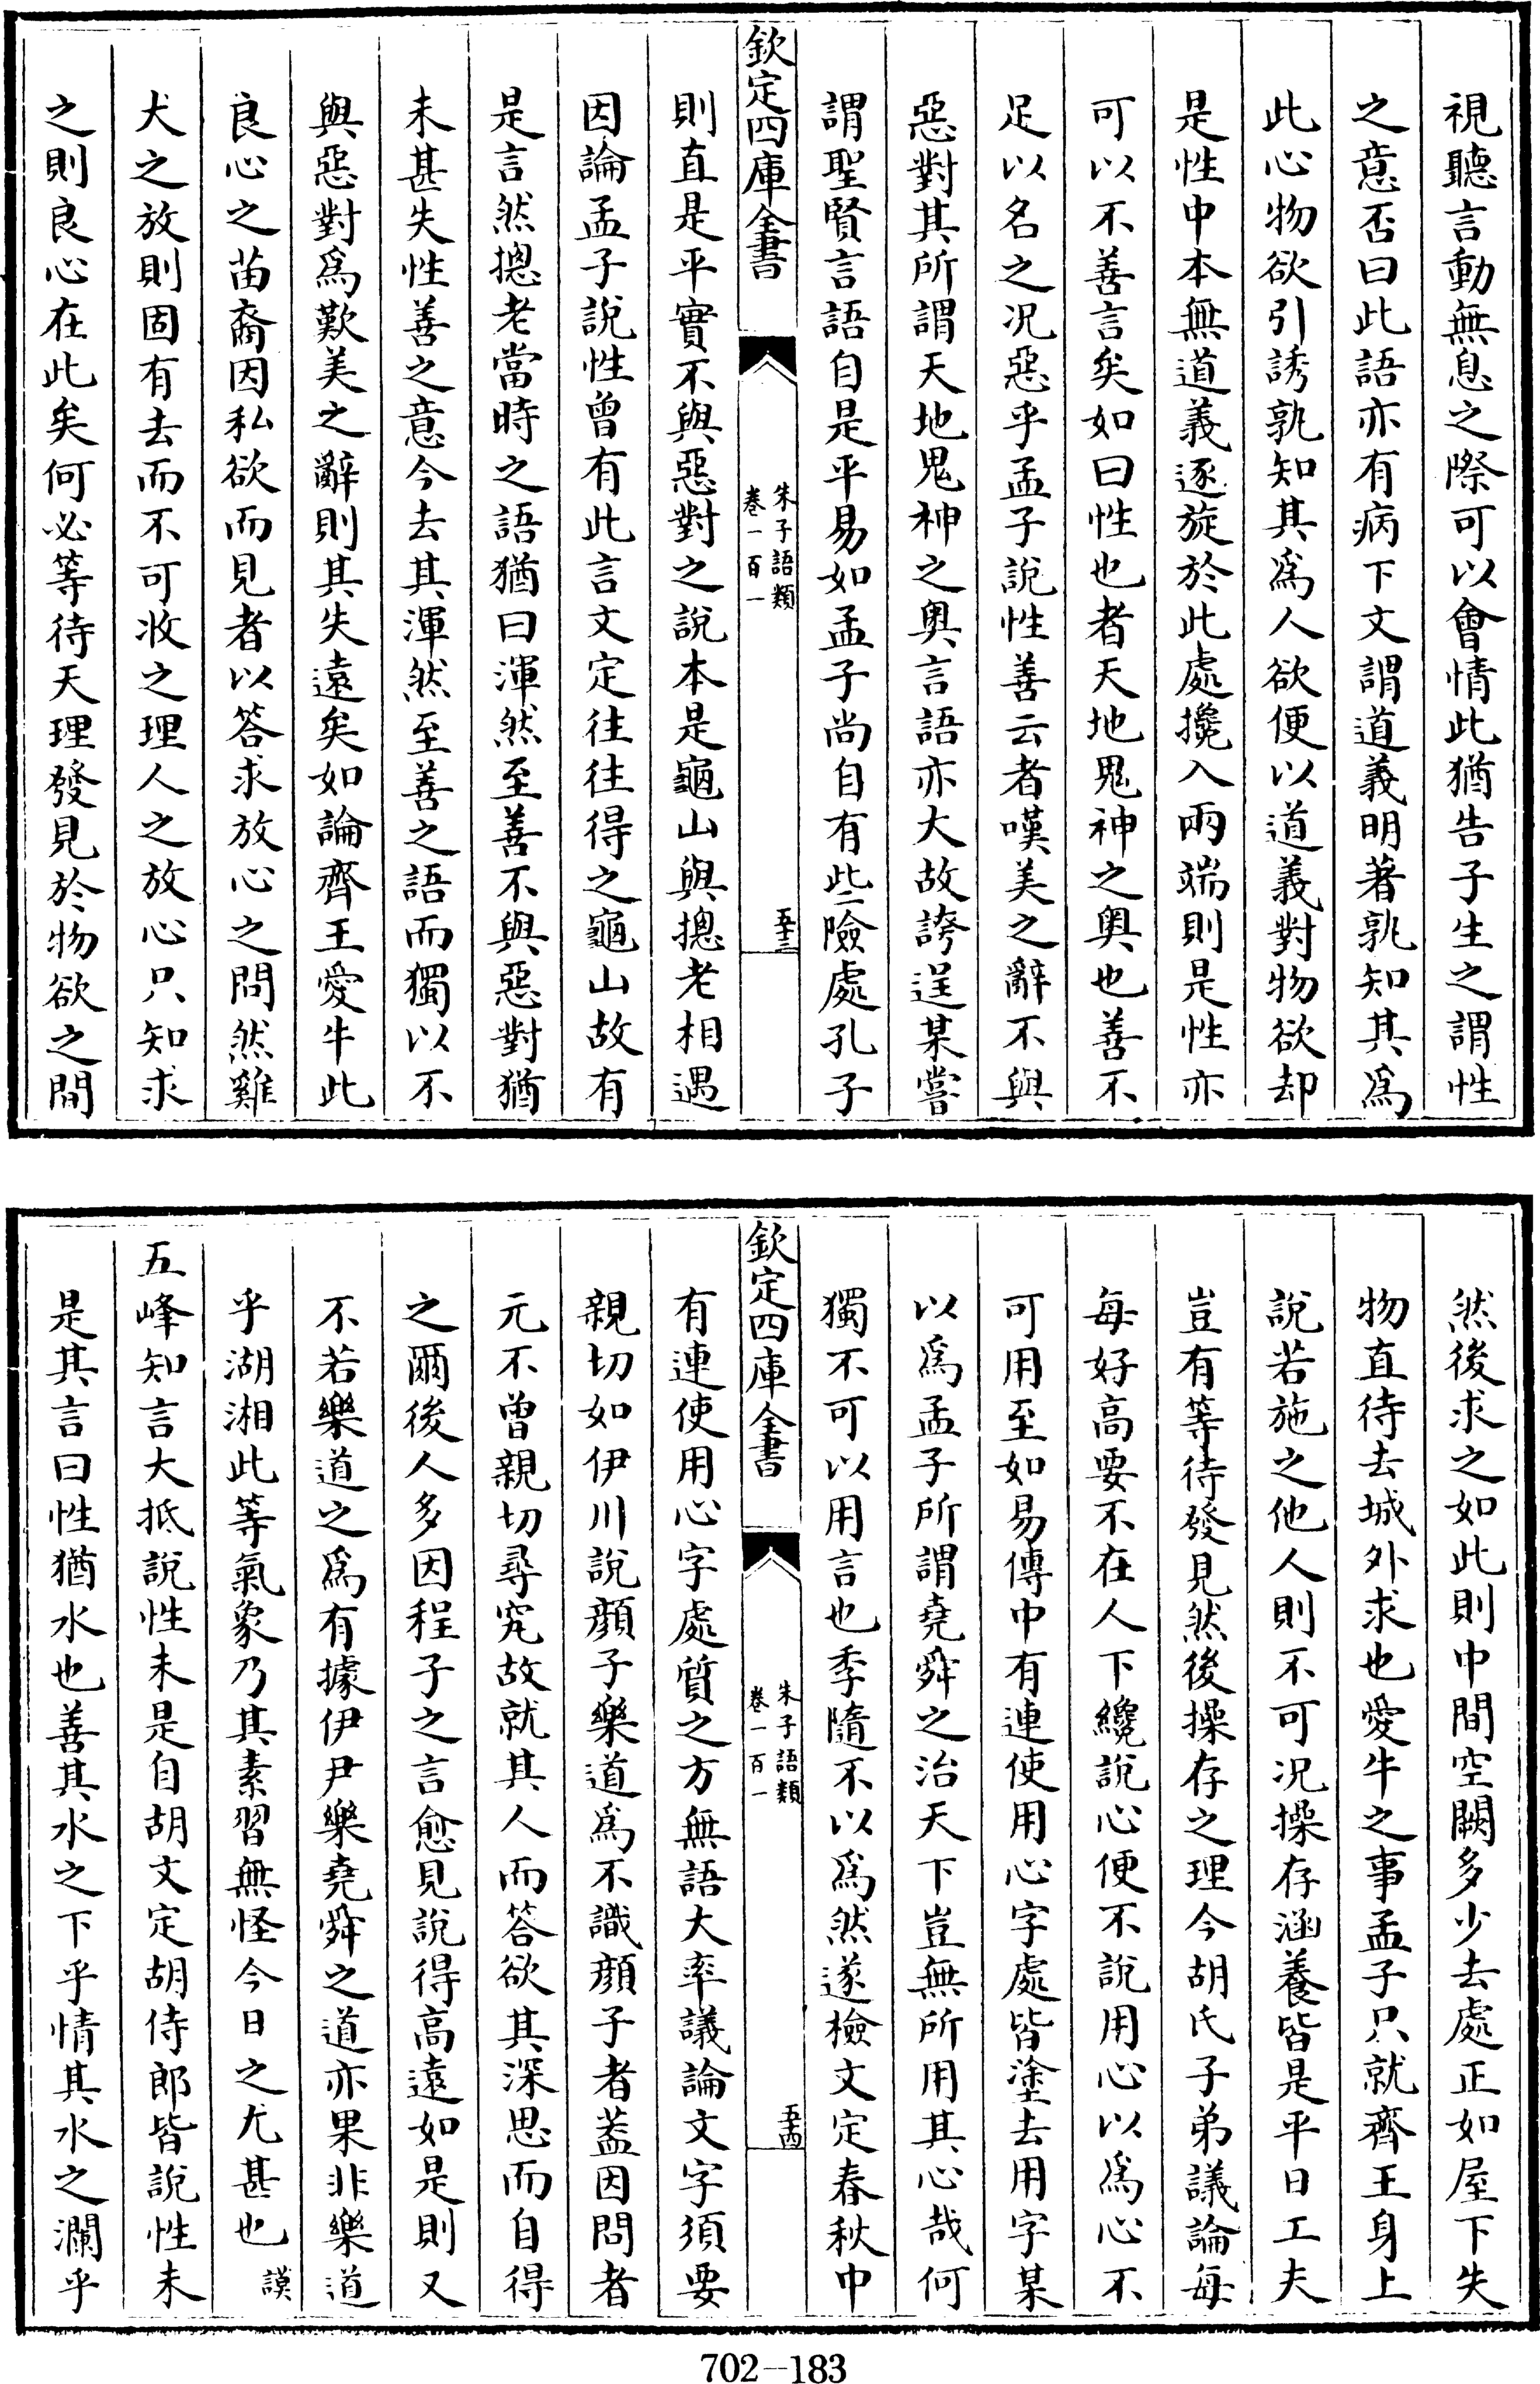 視聽言動無息之際可以會情此猶告子生之謂性
之意否曰此語亦有病下文謂道義明著孰知其爲
此心物欲引誘孰知其爲人欲便以道義對物欲却
是性中本無道義逐旋於此處攙入兩端則是性亦
可以不善言矣如曰性也者天地鬼神之奥也善不
足以名之况惡乎孟子說性善云者嘆美之辭不與
惡對其所謂天地鬼神之奥言語亦大故誇逞某嘗
謂聖賢言語自是平易如孟子尚自有些險處孔子
欽定四庫全書
朱子語類
卷一百一
五十三
則直是平實不與惡對之說本是龜山與摠老相遇
因論孟子說性曾有此言文定往往得之龜山故有
是言然摠老當時之語猶曰渾然至善不與惡對猶
未甚失性善之意今去其渾然至善之語而獨以不
與惡對爲歎美之辭則其失遠矣如論齊王愛牛此
良心之苗裔因私欲而見者以答求放心之問然雞
犬之放則固有去而不可收之理人之放心只知求
之則良心在此矣何必等待天理發見於物欲之間
然後求之如此則中間空闕多少去處正如屋下失
物直待去城外求也愛牛之事孟子只就齊王身上
說若施之他人則不可况操存涵養皆是平日工夫
豈有等待發見然後操存之理今胡氏子弟議論每
每好高要不在人下纔說心便不說用心以爲心不
可用至如易傳中有連使用心字處皆塗去用字某
以爲孟子所謂堯舜之治天下豈無所用其心哉何
獨不可以用言也季隨不以爲然遂檢文定春秋中
欽定四庫全書
朱子語類
卷一百一
五十四
有連使用心字處質之方無語大率議論文字須要
親切如伊川說顔子樂道爲不識顔子者蓋因問者
元不曾親切尋究故就其人而答欲其深思而自得
之爾後人多因程子之言愈見說得高遠如是則又
不若樂道之爲有據伊尹樂堯舜之道亦果非樂道
乎湖湘此等氣象乃其素習無怪今日之尤甚也謨
五峰知言大抵說性未是自胡文定胡侍郎皆說性未
是其言曰性猶水也善其水之下乎情其水之瀾乎
702-183